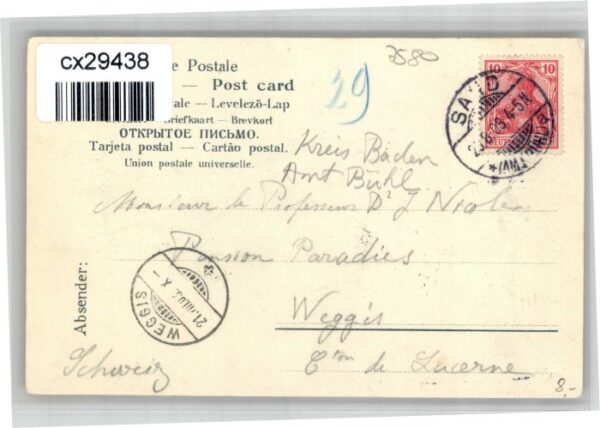 cx29438
7580
e Postale
— Post card
ale — Levelező-Lap
Briefkaart — Brevkort
ОТКРЫТОЕ ПИСЬМО.
Tarjeta postal — Cartão postal.
Union postale universelle.
29
10 10
SA
Kreis Baden
Amt Bühl
Monsieur le Professeur Dr J Nicole
Pension Paradies
Weggis
Cton de Lucerne
Schweiz
Absender:
WEGGIS
8.-